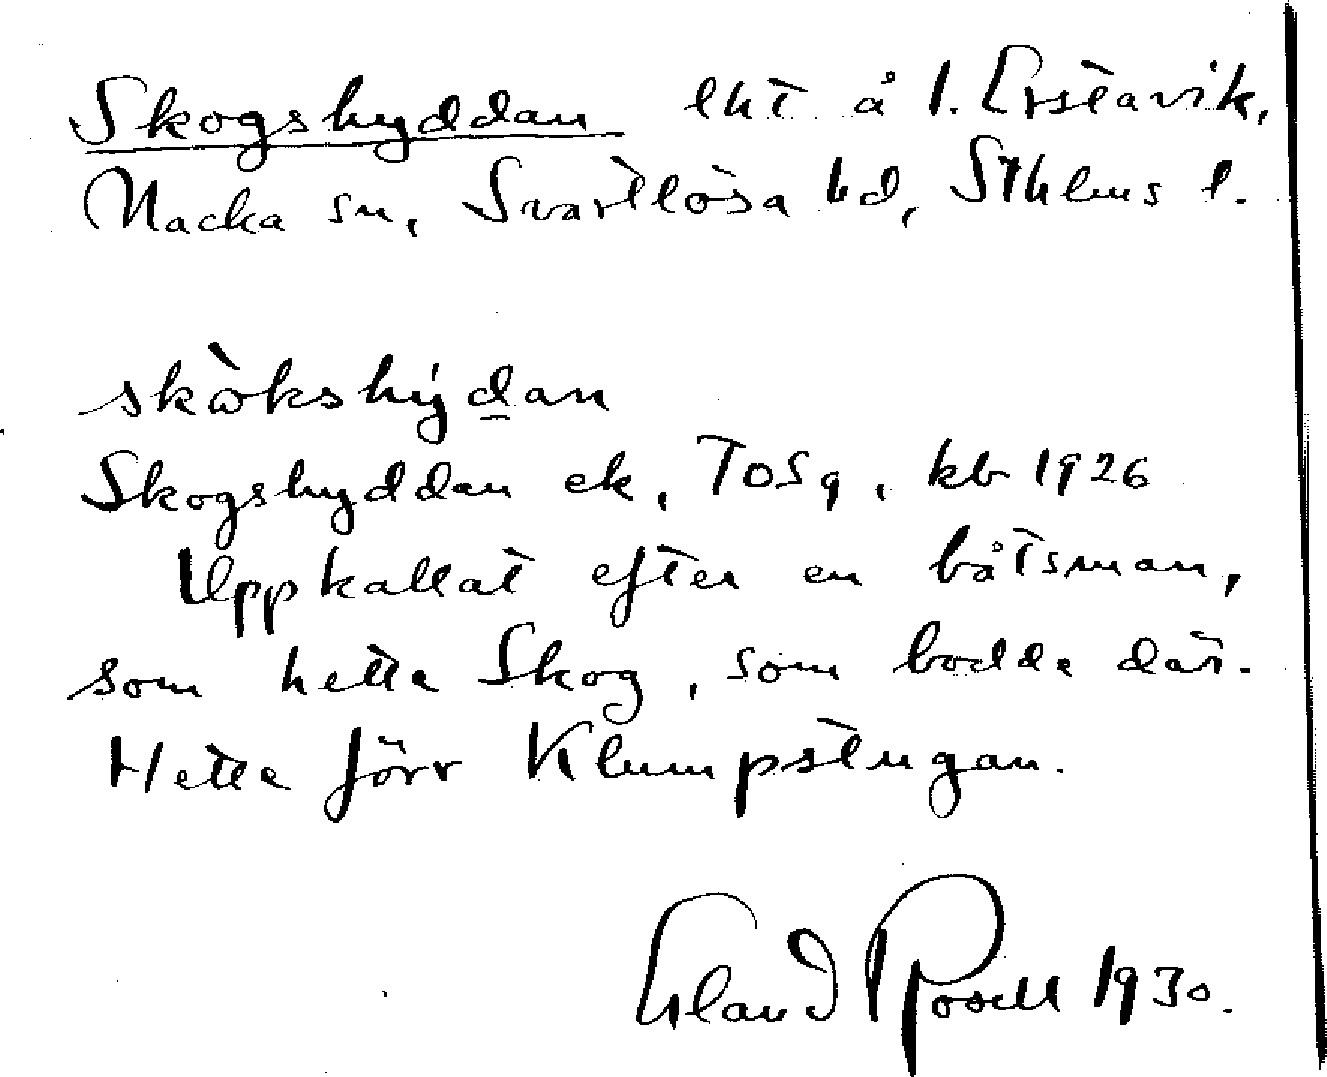 Skogshyddan lht å 1. Erstavik,
Nacka sn, Svartlösa hd, Sthlms l.
skòkshýdan
Skogshyddan ek, TOSq, kb 1926
Uppkallat efter en båtsman,
som hette Skog, som bodde där.
Hette förr Klumpstugan.
Erland Rosell 1930.